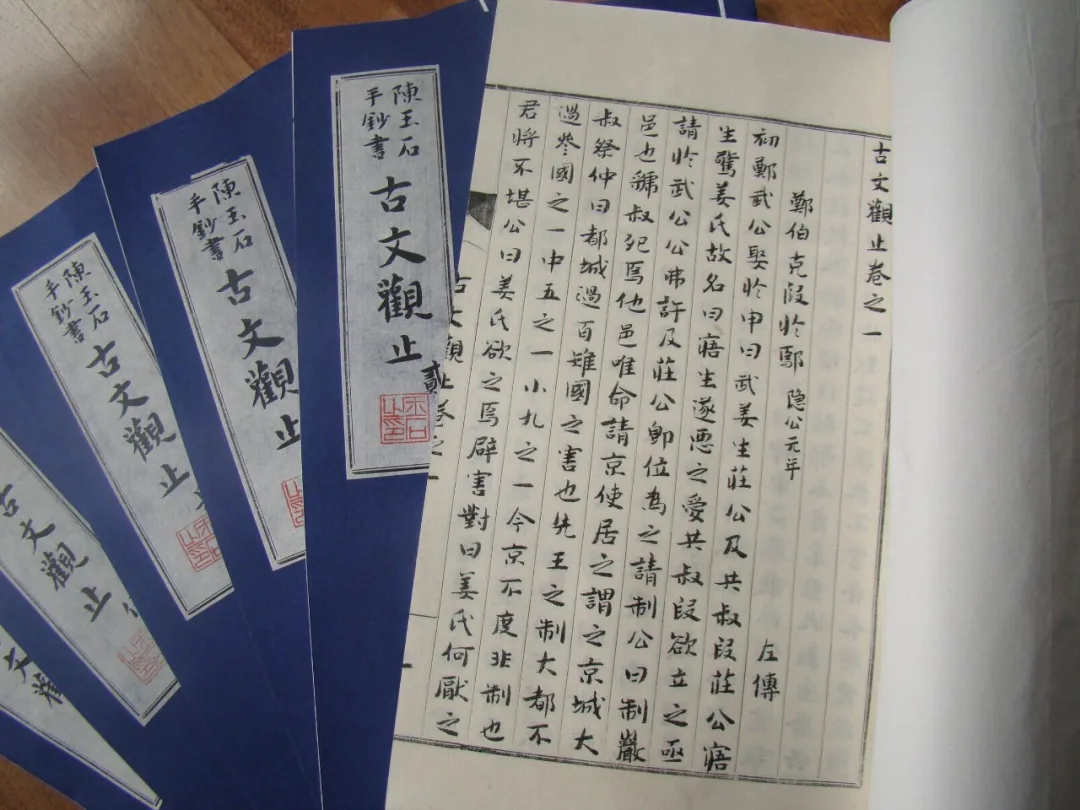 古文觀止卷之一
鄭伯克段於鄢 隐公元年 左傳
初鄭武公娶於申曰武姜生莊公及共叔段莊公寤
生驚姜氏故名曰寤生遂惡之愛共叔段欲立之亟
請於武公公弗許及莊公即位為之請制公曰制巖
邑也虢叔死焉他邑唯命請京使居之謂之京城大
叔祭仲曰都城過百雉國之害也先王之制大都不
過參國之一中五之一小九之一今京不度非制也
君將不堪公曰姜氏欲之焉辟害對曰姜氏何厭之
古文觀止卷之一
一
陳玉石
手鈔書
古文觀止
貳
陳玉石
手鈔書
古文觀止
陳玉石
手鈔書
古文觀止
古文觀止
文觀